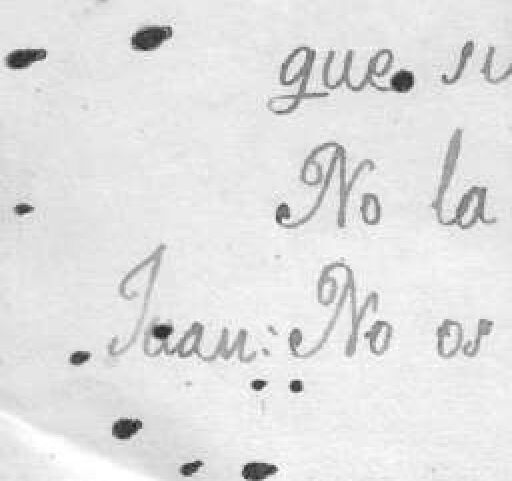 que su
No la
Juan: No os